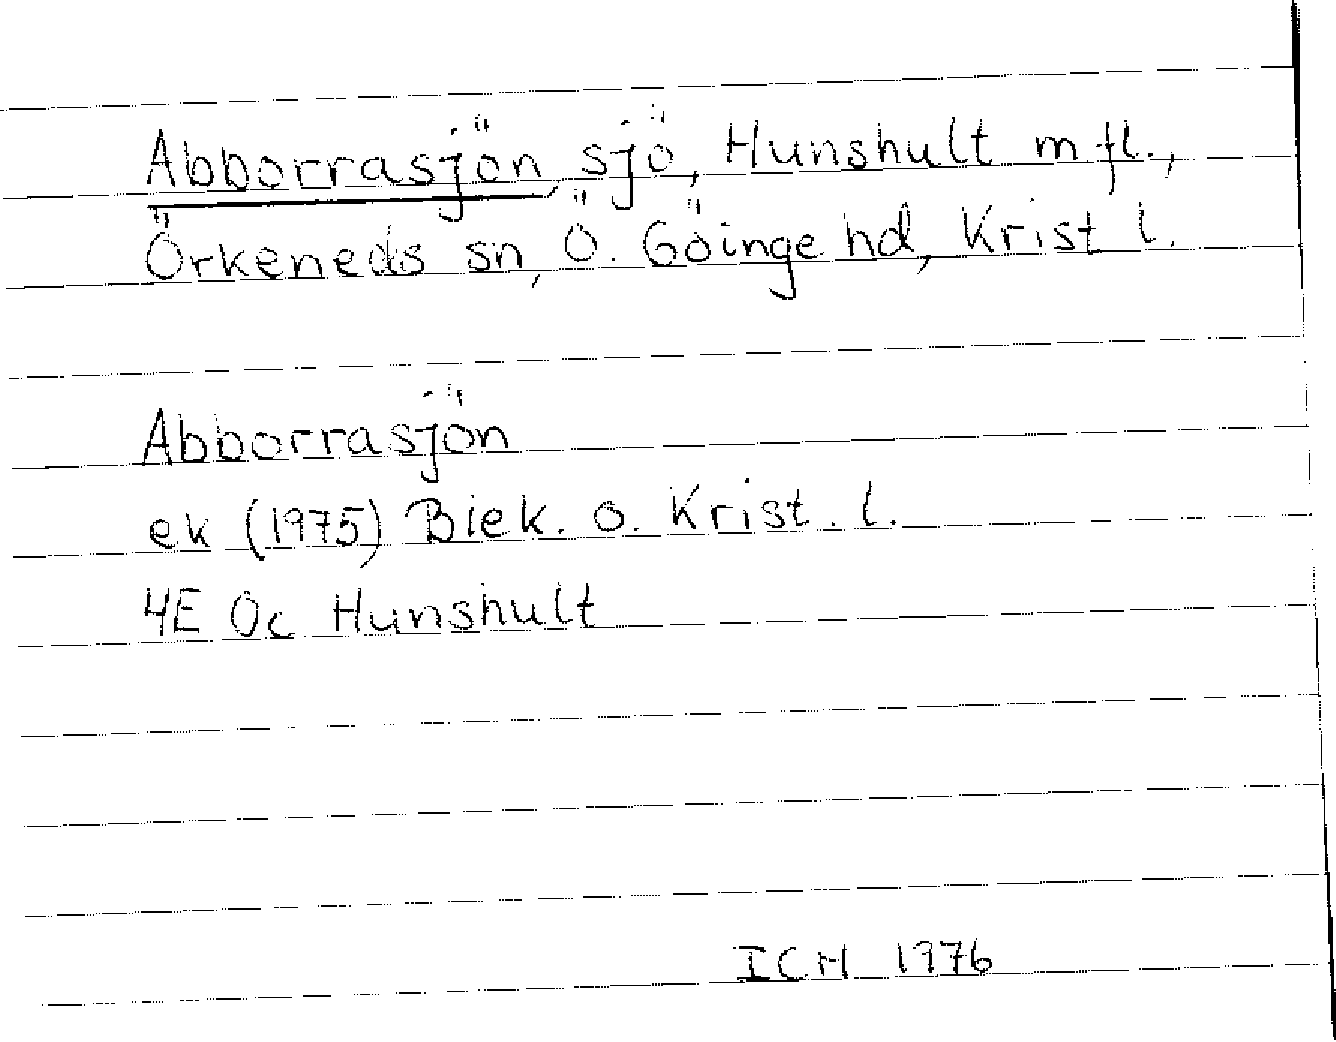 Abborrasjön sjö, Hunshult m fl.,
Örkeneds sn, Ö. Göinge hd, Krist l.
Abborrasjön
ek (1975) Blek. o. Krist. l.
4E 0c Hunshult
ICM 1976